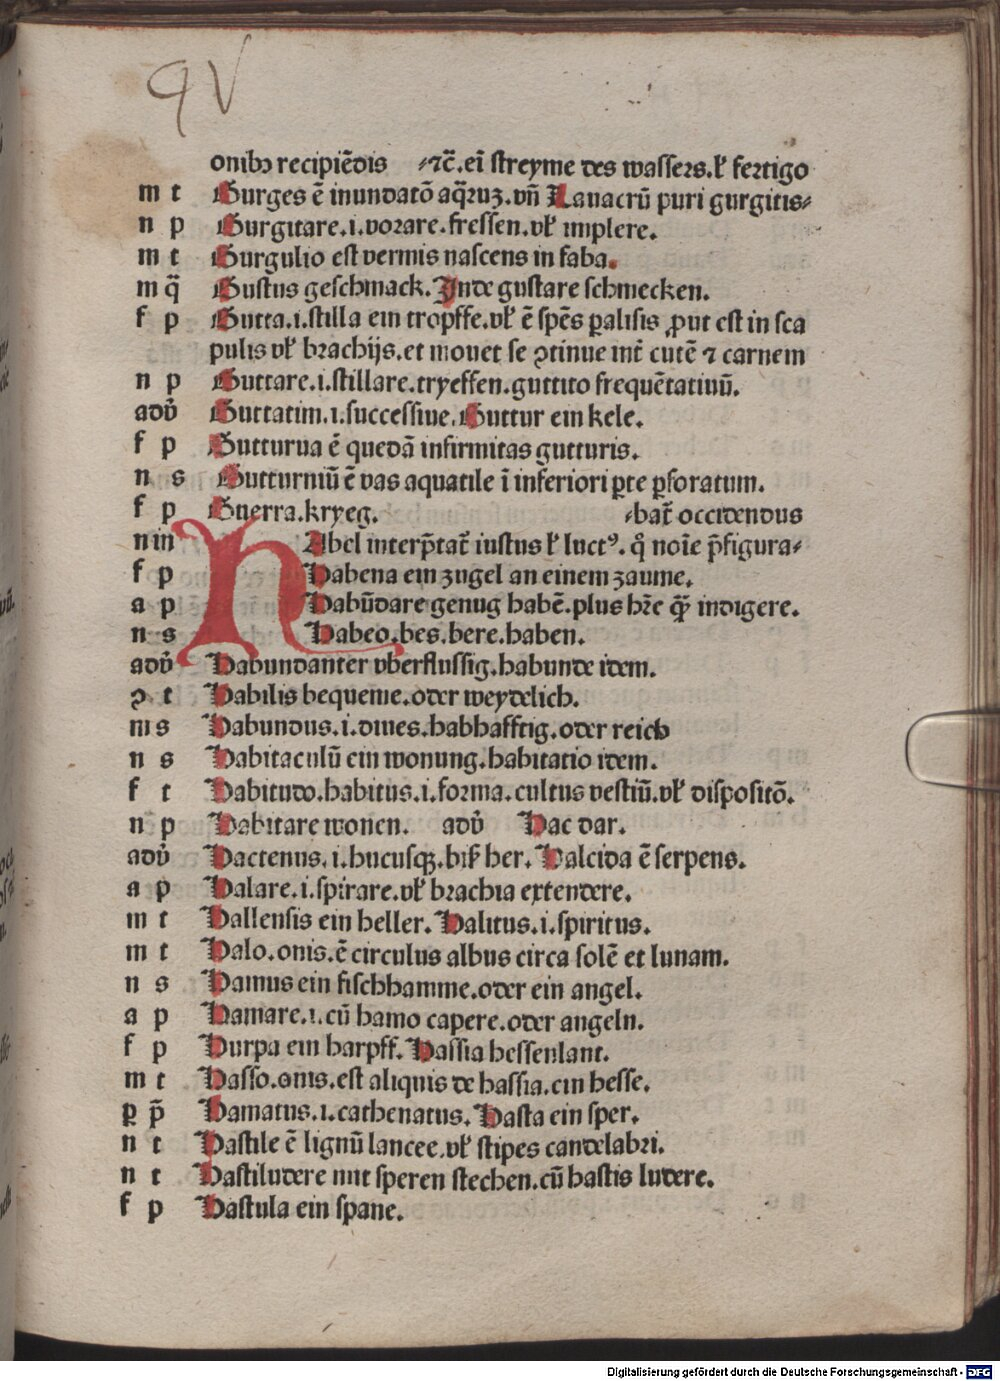 qV
onibꝫ recipiēdis ⸗ꝛc̄. eī streyme des wassers. ł fertigo
m t Gurges ē inundatō aq̄ruꝫ. vn̄ Lauacrū puri gurgitis⸗
n p Gurgitare .i. vorare. fressen. vł implere.
m t Gurgulio est vermis nascens in faba.
m q̄ Gustus geschmack. Inde gustare schmecken.
f p Gutta .i. stilla ein tropffe. vł ē spēs ꝑalisis ꝓut est in sca
pulis vł brachijs. et mouet se ꝯtinue int̄ cutē ⁊ carnem
n p Guttare .i. stillare. tryeffen. guttito frequētatiuū.
adv̄ Guttatim .i. successiue. Guttur ein kele.
f p Gutturua ē quedā infirmitas gutturis.
n s Gutturniū ē vas aquatile ī inferiori ꝑte ꝑforatum.
f p Guerra. kryeg. ⸗bat̄ occidendus
n in HAbel interp̄tat̄ iustus ł luctꝰ. qͦ noīe p̄figura⸗
f p Habena ein zugel an einem zaume.
a p Habūdare genug habē. plus hr̄e qͣꝫ indigere.
n s Habeo. bes. bere. haben.
adv̄ Habundanter vberflussig. habunde idem.
ꝯ t Habilis bequeme. oder weydelich.
m s Habundus .i. diues. habhafftig. oder reich
n s Habitaculū ein wonung. habitatio idem.
f t Habitudo. habitus .i. forma. cultus vestiū. vł dispositō.
n p Habitare wonen. adv̄ Hac dar.
adv̄ Hactenus .i. hucusqꝫ. biß her. Halcida ē serpens.
a p Halare .i. spirare. vł brachia extendere.
m t Hallensis ein heller. Halitus .i. spiritus.
m t Halo. onis. ē circulus albus circa solē et lunam.
n s Hamus ein fischhamme. oder ein angel.
a p Hamare .i. cū hamo capere. oder angeln.
f p Hurpa ein harpff. Hassia hessenlant.
m t Hasso. onis. est aliquis de hassia. ein hesse.
ꝑ p̄ Hamatus .i. cathenatus. Hasta ein sper.
n t Hastile ē lignū lancee. vł stipes candelabri.
n t Hastiludere mit speren stechen. cū hastis ludere.
f p Hastula ein spane.
Digitalisierung gefördert durch die Deutsche Forschungsgemeinschaft - DFG